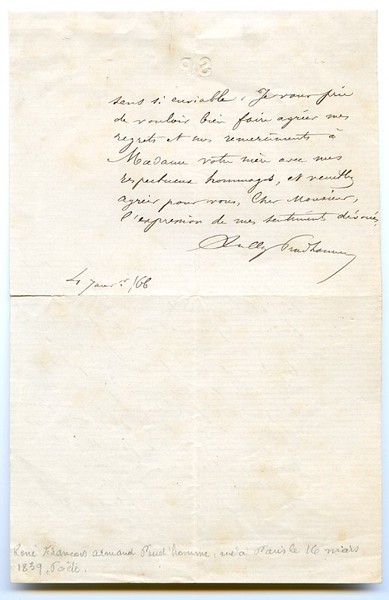 SP
sens si enviable. Je vous prie
de vouloir bien faire agréer mes
regrets et mes remerciements à
Madame votre mère avec mes
respectueux hommages, et veuillez
agréer pour vous, Cher Monsieur,
l'expression de mes sentiments dévoués,
Sully Prudhomme
4 janv. 66
René François armand Prud'homme, né à Paris le 16 mars
1839, Poète.